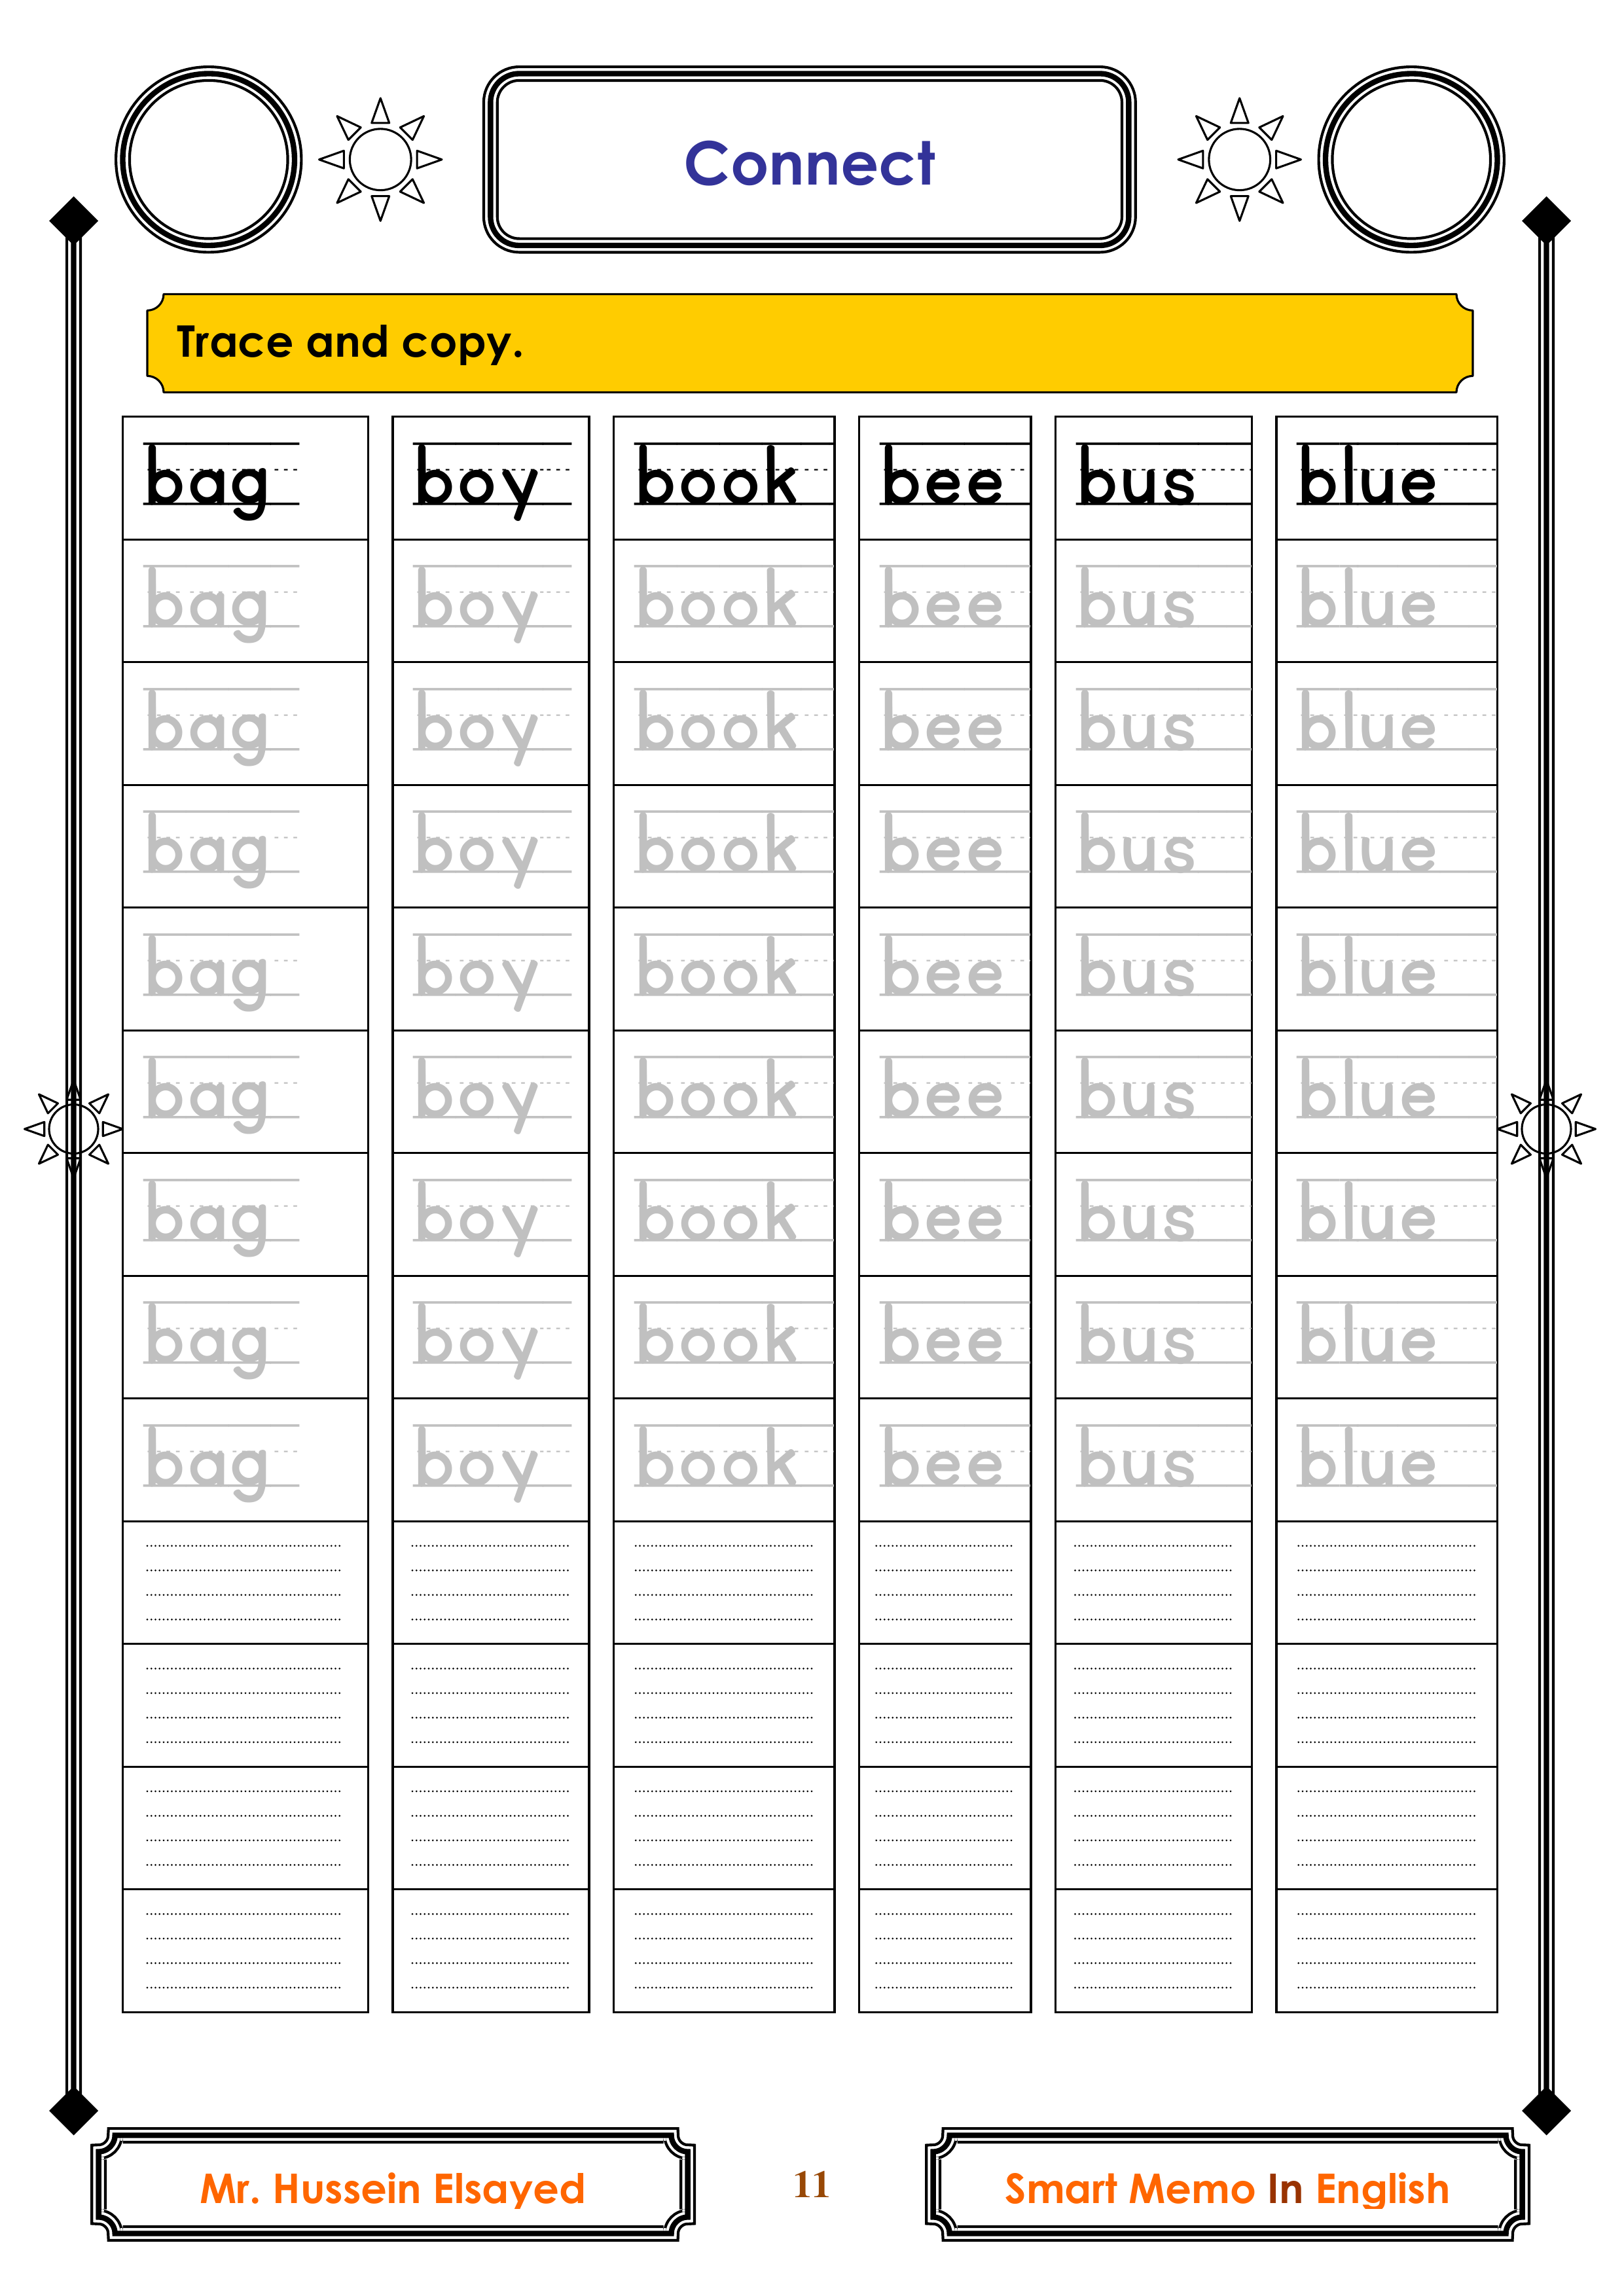 Connect
Trace and copy.
bag boy book bee bus blue
bag boy book bee bus blue
bag boy book bee bus blue
bag boy book bee bus blue
bag boy book bee bus blue
bag boy book bee bus blue
bag boy book bee bus blue
bag boy book bee bus blue
bag boy book bee bus blue
Mr. Hussein Elsayed 11 Smart Memo In English